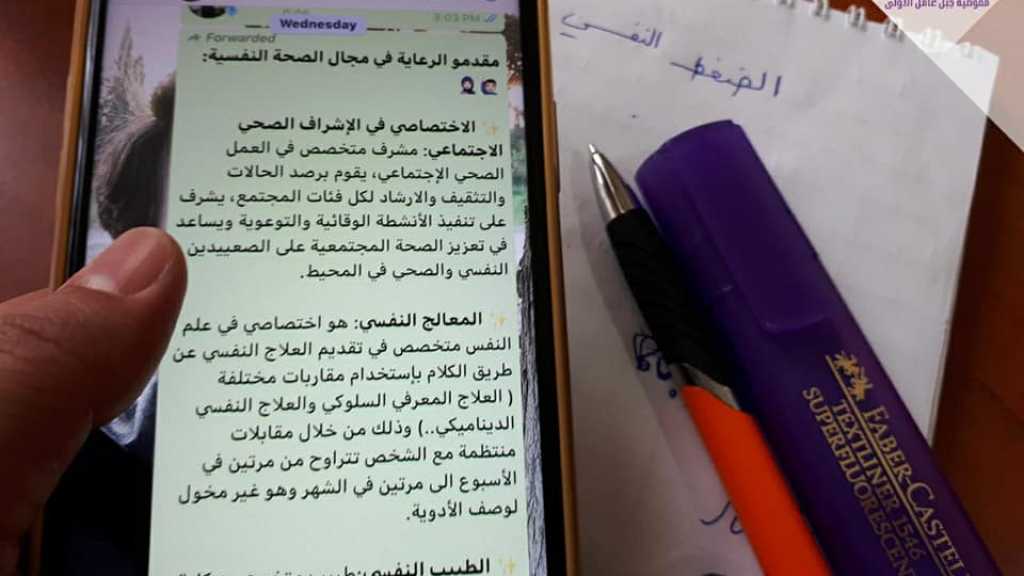 مفوضية جبل عامل الأولى
3:03 PM
Wednesday
Forwarded
مقدمو الرعاية في مجال الصحة النفسية:
الاختصاصي في الإشراف الصحي
الاجتماعي: مشرف متخصص في العمل
الصحي الإجتماعي، يقوم برصد الحالات
والتثقيف والارشاد لكل فئات المجتمع، يشرف
على تنفيذ الأنشطة الوقائية والتوعوية ويساعد
في تعزيز الصحة المجتمعية على الصعييدين
النفسي والصحي في المحيط.
المعالج النفسي: هو اختصاصي في علم
النفس متخصص في تقديم العلاج النفسي عن
طريق الكلام بإستخدام مقاربات مختلفة
( العلاج المعرفي السلوكي والعلاج النفسي
الديناميكي..) وذلك من خلال مقابلات
منتظمة مع الشخص تتراوح من مرتين في
الأسبوع الى مرتين في الشهر وهو غير مخول
لوصف الأدوية.
الطبيب النفسي:
الضغط النفسي
FABER-CASTELL
TEXTLINER 1546
SUPERFLUORESCEN